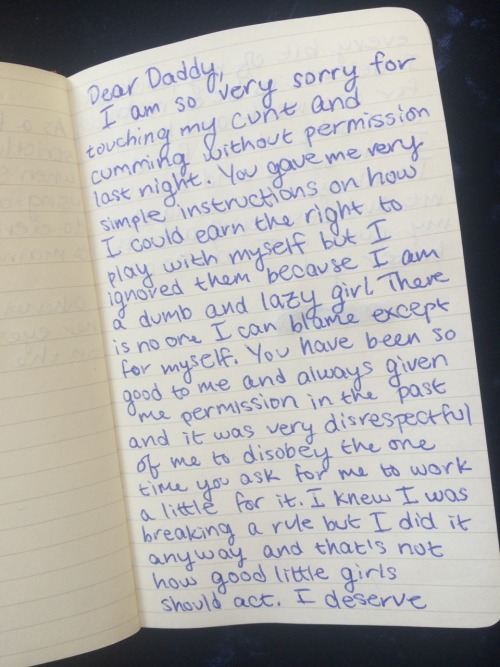 Dear Daddy,
I am so very sorry for
touching my cunt and
cumming without permission
last night. You gave me very
simple instructions on how
I could earn the right to
play with myself but I
ignored them because I am
a dumb and lazy girl. There
is no one I can blame except
for myself. You have been so
good to me and always given
me permission in the past
and it was very disrespectful
of me to disobey the one
time you ask for me to work
a little for it. I knew I was
breaking a rule but I did it
anyway and that's not
how good little girls
should act. I deserve